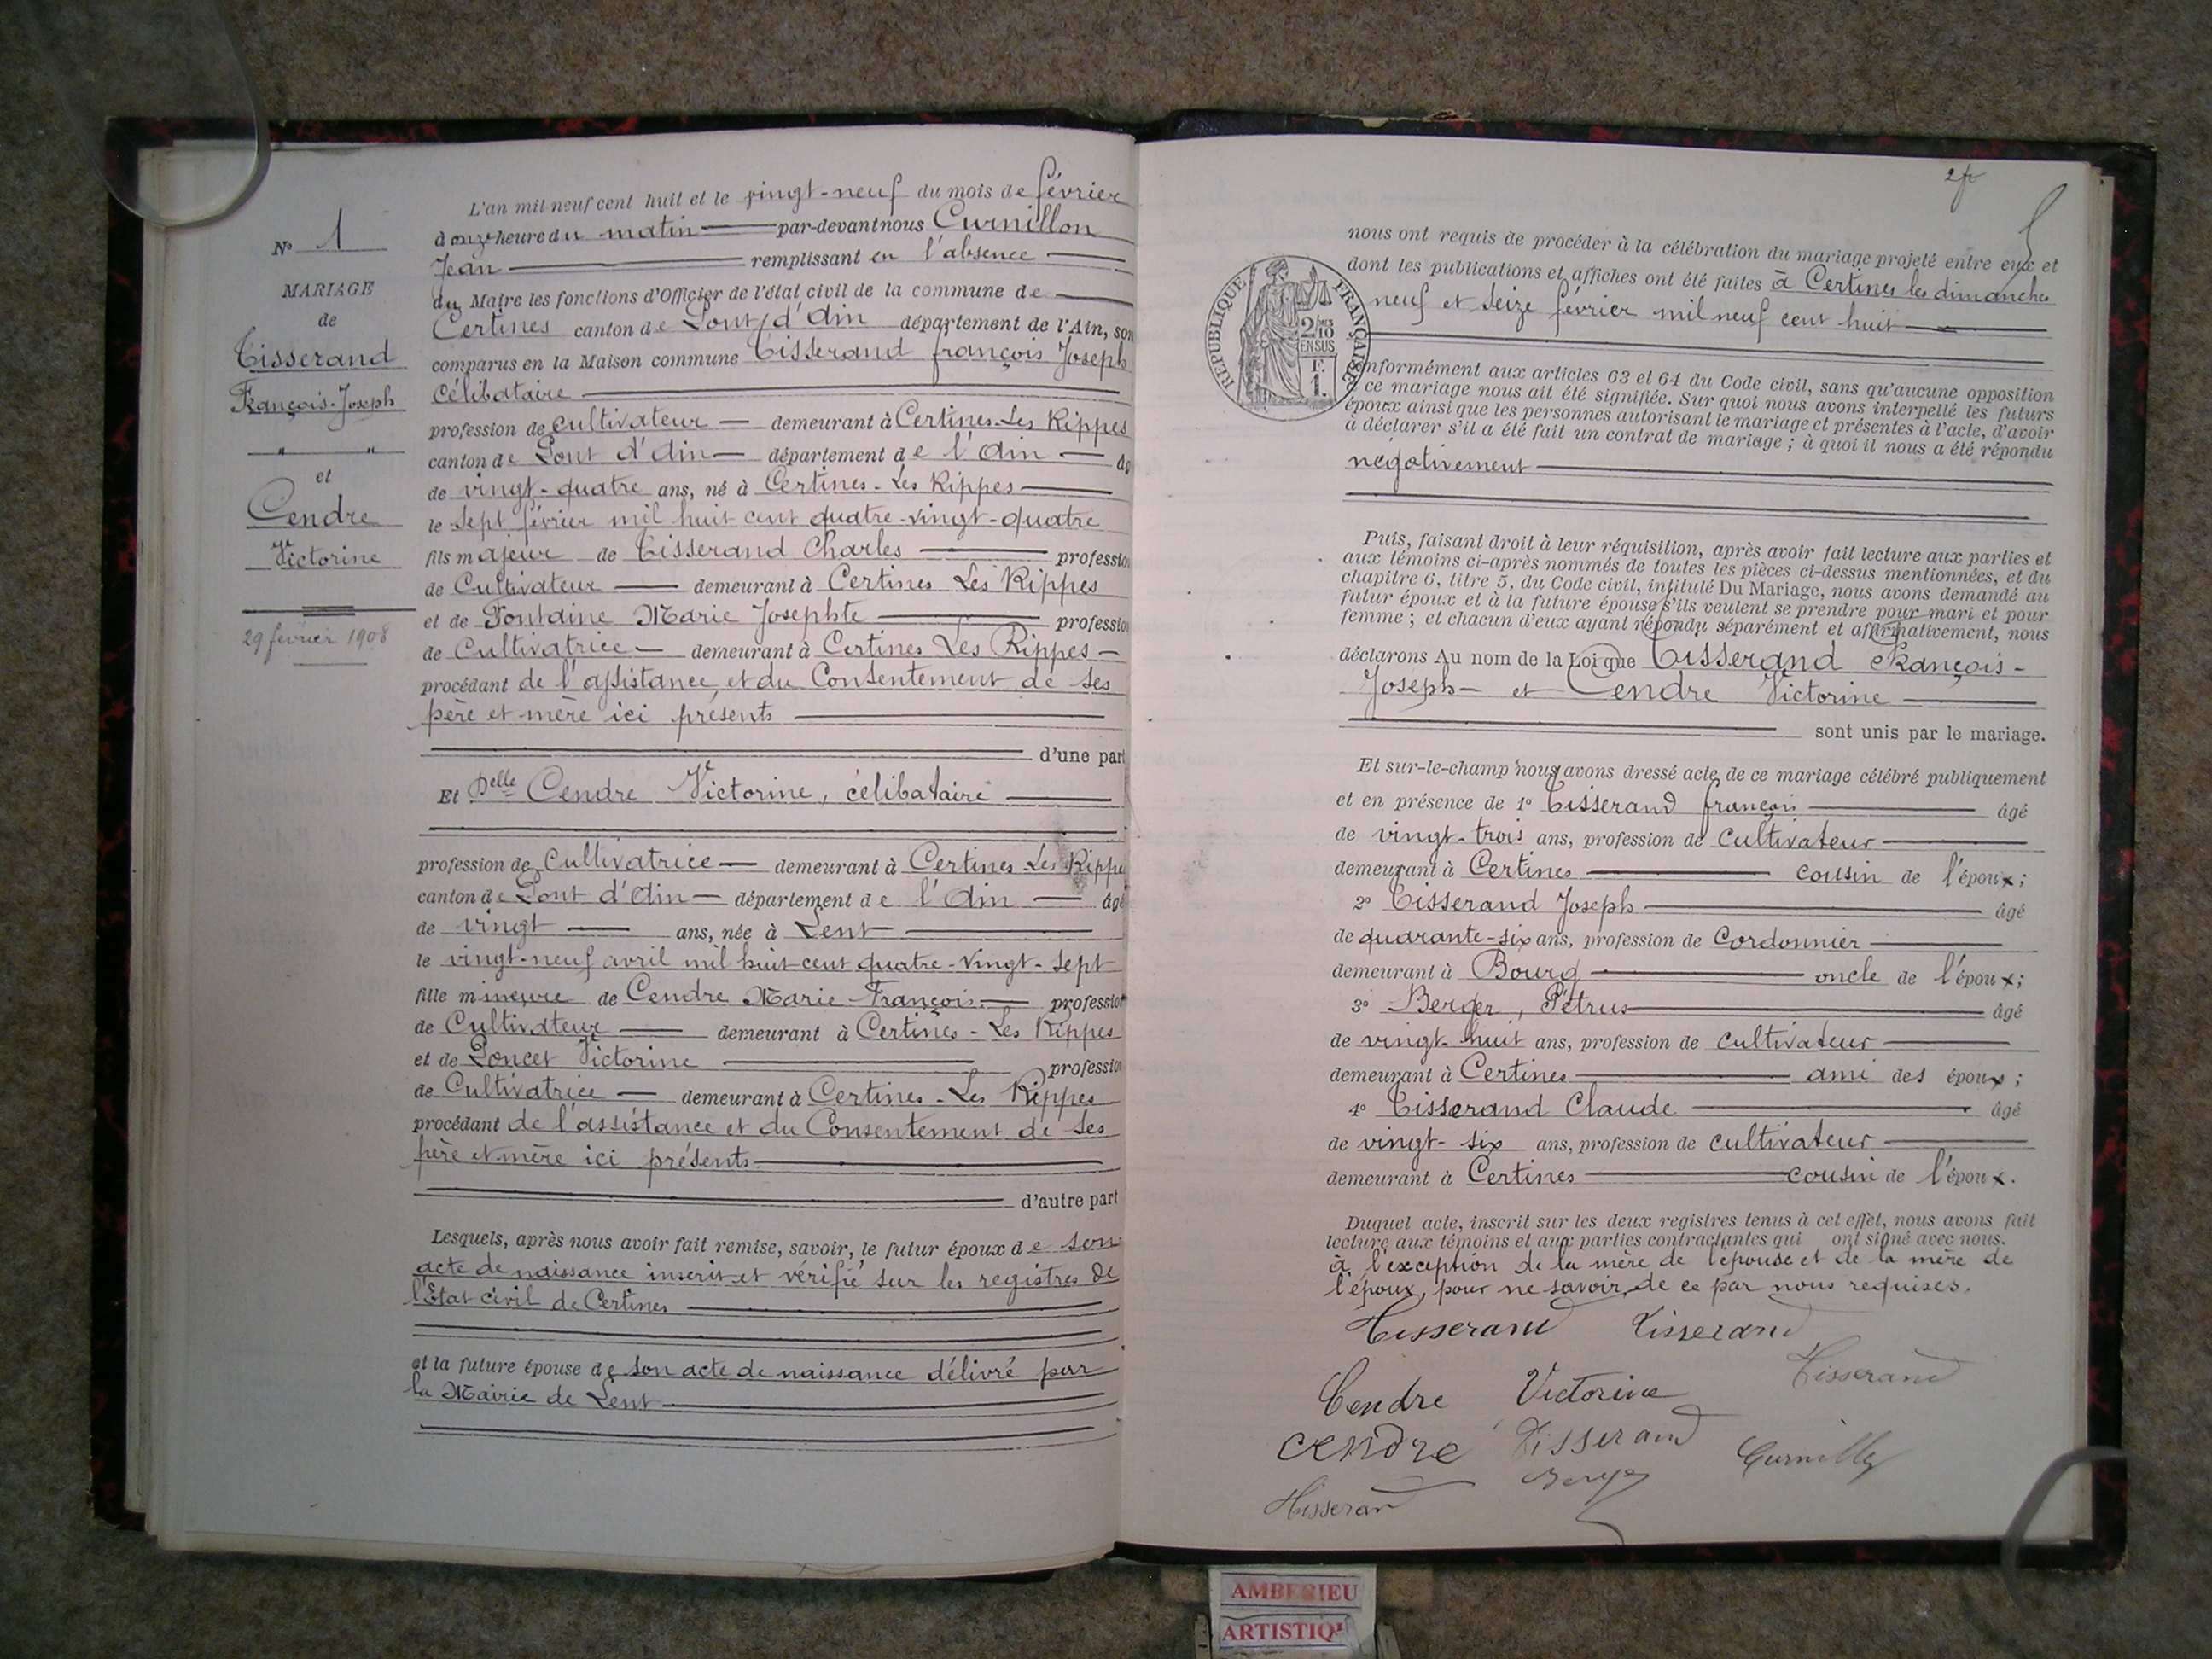 N° 1
MARIAGE
de
Tisserand
François-Joseph
" "
et
Cendre
Victorine
29 février 1908
L'an mil neuf cent huit et le vingt-neuf du mois de février
à onze heure du matin par-devant nous Curnillon
Jean remplissant en l'absence
du Maire les fonctions d'Officier de l'état civil de la commune de
Certines canton de Pont d'Ain département de l'Ain, son
comparus en la Maison commune Tisserand françois Joseph
Célibataire
profession de cultivateur demeurant à Certines-Les Rippes
canton de Pont d'Ain département de l'Ain
de vingt-quatre ans, né à Certines-Les Rippes
le sept février mil huit cent quatre-vingt-quatre
fils majeur de Tisserand Charles professio
de Cultivateur demeurant à Certines Les Rippes
et de Fontaine Marie Josephte professio
de Cultivatrice demeurant à Certines Les Rippes
procédant de l'assistance et du Consentement de ses
père et mère ici présents
d'une part
Et Delle Cendre Victorine, célibataire
profession de Cultivatrice demeurant à Certines Les Rippe
canton de Pont d'Ain département de l'Ain âgé
de vingt ans, née à Lent
le vingt-neuf avril mil huit cent quatre-vingt-sept
fille mineure de Cendre Marie François profession
de Cultivateur demeurant à Certines-Les Rippes
et de Poncet Victorine profession
de Cultivatrice demeurant à Certines-Les Rippes
procédant de l'assistance et du Consentement de ses
père et mère ici présents
d'autre part
Lesquels, après nous avoir fait remise, savoir, le futur époux de son
acte de naissance inscrit et vérifié sur les registres de
l'Etat civil de Certines
et la future épouse de son acte de naissance délivré par
la Mairie de Lent
nous ont requis de procéder à la célébration du mariage projeté entre eux et
dont les publications et affiches ont été faites à Certines les dimanches
neuf et seize février mil neuf cent huit
RÉPUBLIQUE FRANÇAISE
2/10
EN SUS
F.
1.
onformément aux articles 63 et 64 du Code civil, sans qu'aucune opposition
ce mariage nous ait été signifiée. Sur quoi nous avons interpellé les futurs
époux ainsi que les personnes autorisant le mariage et présentes à l'acte, d'avoir
à déclarer s'il a été fait un contrat de mariage ; à quoi il nous a été répondu
négativement
Puis, faisant droit à leur réquisition, après avoir fait lecture aux parties et
aux témoins ci-après nommés de toutes les pièces ci-dessus mentionnées, et du
chapitre 6, titre 5, du Code civil, intitulé Du Mariage, nous avons demandé au
futur époux et à la future épouse s'ils veulent se prendre pour mari et pour
femme ; et chacun d'eux ayant répondu séparément et affirmativement, nous
déclarons Au nom de la Loi que Tisserand François-
Joseph et Cendre Victorine
sont unis par le mariage.
Et sur-le-champ nous avons dressé acte de ce mariage célébré publiquement
et en présence de 1° Tisserand françois âgé
de vingt-trois ans, profession de cultivateur
demeurant à Certines cousin de l'époux;
2° Tisserand Joseph âgé
de quarante-six ans, profession de Cordonnier
demeurant à Bourg oncle de l'époux;
3° Berger, Pétrus âgé
de vingt-huit ans, profession de cultivateur
demeurant à Certines ami des époux;
4° Tisserand Claude âgé
de vingt-six ans, profession de cultivateur
demeurant à Certines cousin de l'époux.
Duquel acte, inscrit sur les deux registres tenus à cet effet, nous avons fait
lecture aux témoins et aux parties contractantes qui ont signé avec nous.
à l'exception de la mère de l'épouse et de la mère de
l'époux, pour ne savoir, de ce par nous requises.
Tisserand Tisserand
Tisserand
Cendre Victorine
Cendre Tisserand
Berger
Tisseran
AMBERIEU
ARTISTIQ